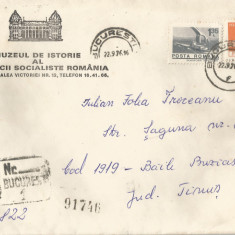 MUZEUL DE ISTORIE
AL
CII SOCIALISTE ROMÂNIA
ALEA VICTORIEI NR. 12, TELEFON 16.41.68.
BUCUREȘTI
22.9.76
POSTA
Iulian Folia Troceanu
Str. Șaguna nr.
Cod 1919 - Băile Buziaș
Jud. Timiș
Nr.
BUCUREȘTI
822
91746